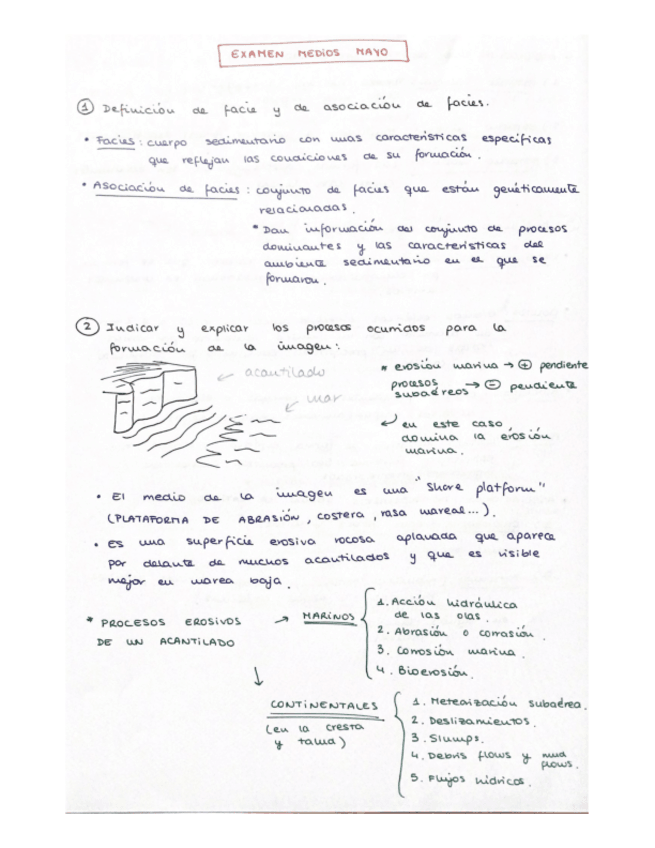 EXAMEN MEDIOS MAYO
① Definición de facie y de asociación de facies.
• Facies: cuerpo sedimentario con unas características específicas
que reflejan las condiciones de su formación.
• Asociación de facies: conjunto de facies que están genéticamente
relacionadas.
* Dan información del conjunto de procesos
dominantes y las características del
ambiente sedimentario en el que se
formaron.
② Indicar y explicar los procesos ocurridos para la
formación de la imagen:
acantilado
mar
* erosión marina → ⊕ pendiente
procesos
subaéreos → ⊖ pendiente
en este caso
domina la erosión
marina.
• El medio de la imagen es una "Shore platform"
(PLATAFORMA DE ABRASIÓN, costera, rasa mareal...).
• Es una superficie erosiva rocosa aplanada que aparece
por delante de muchos acantilados y que es visible
mejor en marea baja.
* PROCESOS EROSIVOS
DE UN ACANTILADO
→ MARINOS
1. Acción hidráulica
de las olas.
2. Abrasión o corrasión.
3. Corrosión marina.
4. Bioerosión.
↓
CONTINENTALES
(en la cresta
y talud)
1. Meteorización subaérea.
2. Deslizamientos.
3. Slumps.
4. Debris flows y mud
flows.
5. Flujos hídricos.